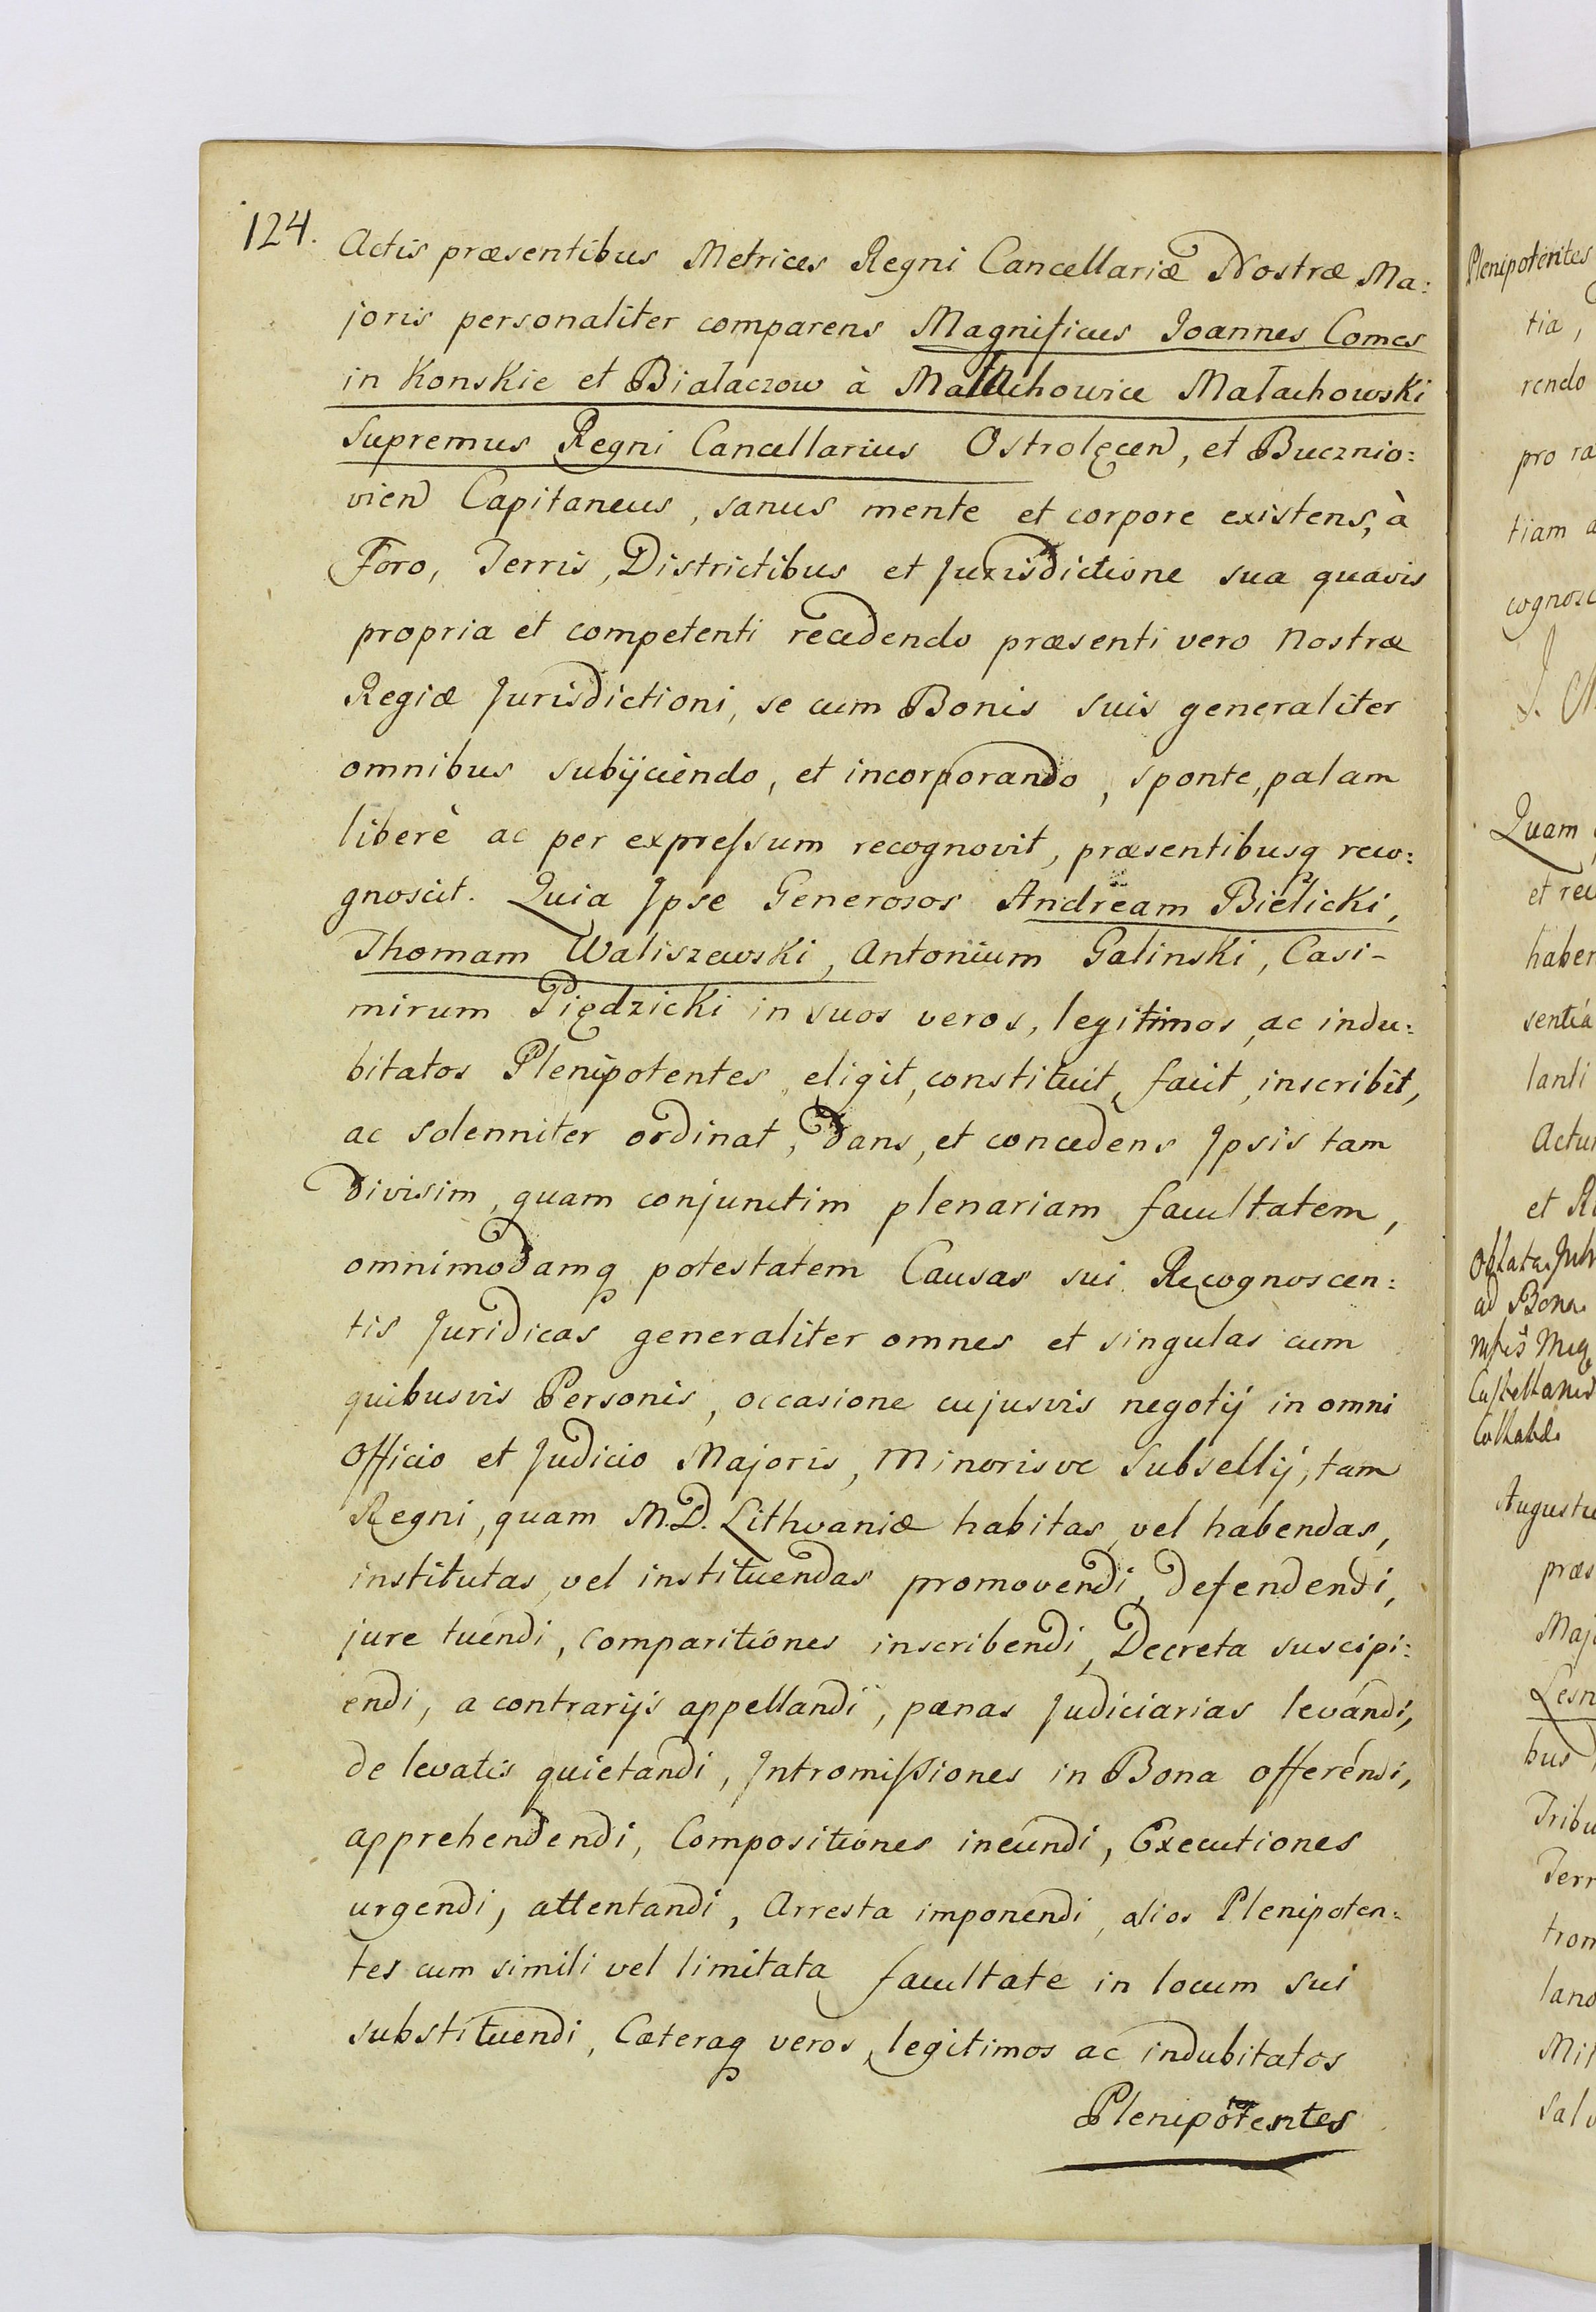 124.
Actis præsentibus Metrices Regni Cancellariæ Nostræ Ma:
joris personaliter comparens Magnificus Joannes Comes
in Konskie et Bialaczow à Malachowice Małachowski
Supremus Regni Cancellarius Ostrolęcen, et Bucznio:
vien Capitaneus, sanus mente et corpore existens, à
Foro, Terris, Districtibus et Jurisdictione sua quavis
propria et competenti recedendo præsenti vero Nostræ
Regiæ Jurisdictioni, se cum Bonis suis generaliter
omnibus subijciendo, et incorporando, sponte, palam
liberè ac per expressum recognovit, præsentibusq reco:
gnoscit. Quia Ipse Generosos Andream Bielicki,
Thomam Waliszewski, Antonium Galinski, Casi-
mirum Piędzicki in suos veros, legitimos, ac indu:
bitatos Plenipotentes eligit, constituit, facit, inscribit,
ac solenniter ordinat, dans, et concedens Ipsis tam
divisim, quam conjunctim plenariam facultatem,
omnimodamq potestatem Causas sui Recognoscen:
tis Juridicas generaliter omnes et singulas cum
quibusvis Personis, occasione cujusvis negotij in omni
Officio et Judicio Majoris, Minorisve Subsellij, tam
Regni, quam M.D. Lithvaniæ habitas, vel habendas,
institutas, vel instituendas promovendi, defendendi,
jure tuendi, Comparitiones inscribendi, Decreta suscipi:
endi, a contrarijs appellandi, pænas Judiciarias levandi,
de levatis quietandi, Intromissiones in Bona offerendi,
apprehendendi, Compositiones ineundi, Executiones
urgendi, attentandi, Arresta imponendi, alios Plenipoten:
tes cum simili vel limitata facultate in locum sui
substituendi, Cæteraq veros, legitimos ac indubitatos
Plenipotentes
Plenipotentes
tia,
rendo
pro ra
tiam a
cognosc
Quam
et rec
haber
sentia
lanti
Actu
et R
Oblata
ad Bona
Augustu
præs
Majo
Lesn
bus
Tribu
Terr
trom
land
Mil
Salv